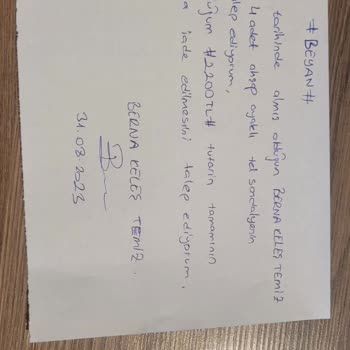 # BEYAN #
tarihinde almış olduğum BERNA KELEŞ TEMİZ
4 adet ahşap ayaklı tel sandalyenin
ep ediyorum,
#2.200TL# tutarın tamamının
iade edilmesini talep ediyorum.
BERNA KELEŞ TEMİZ.
31.03.2023